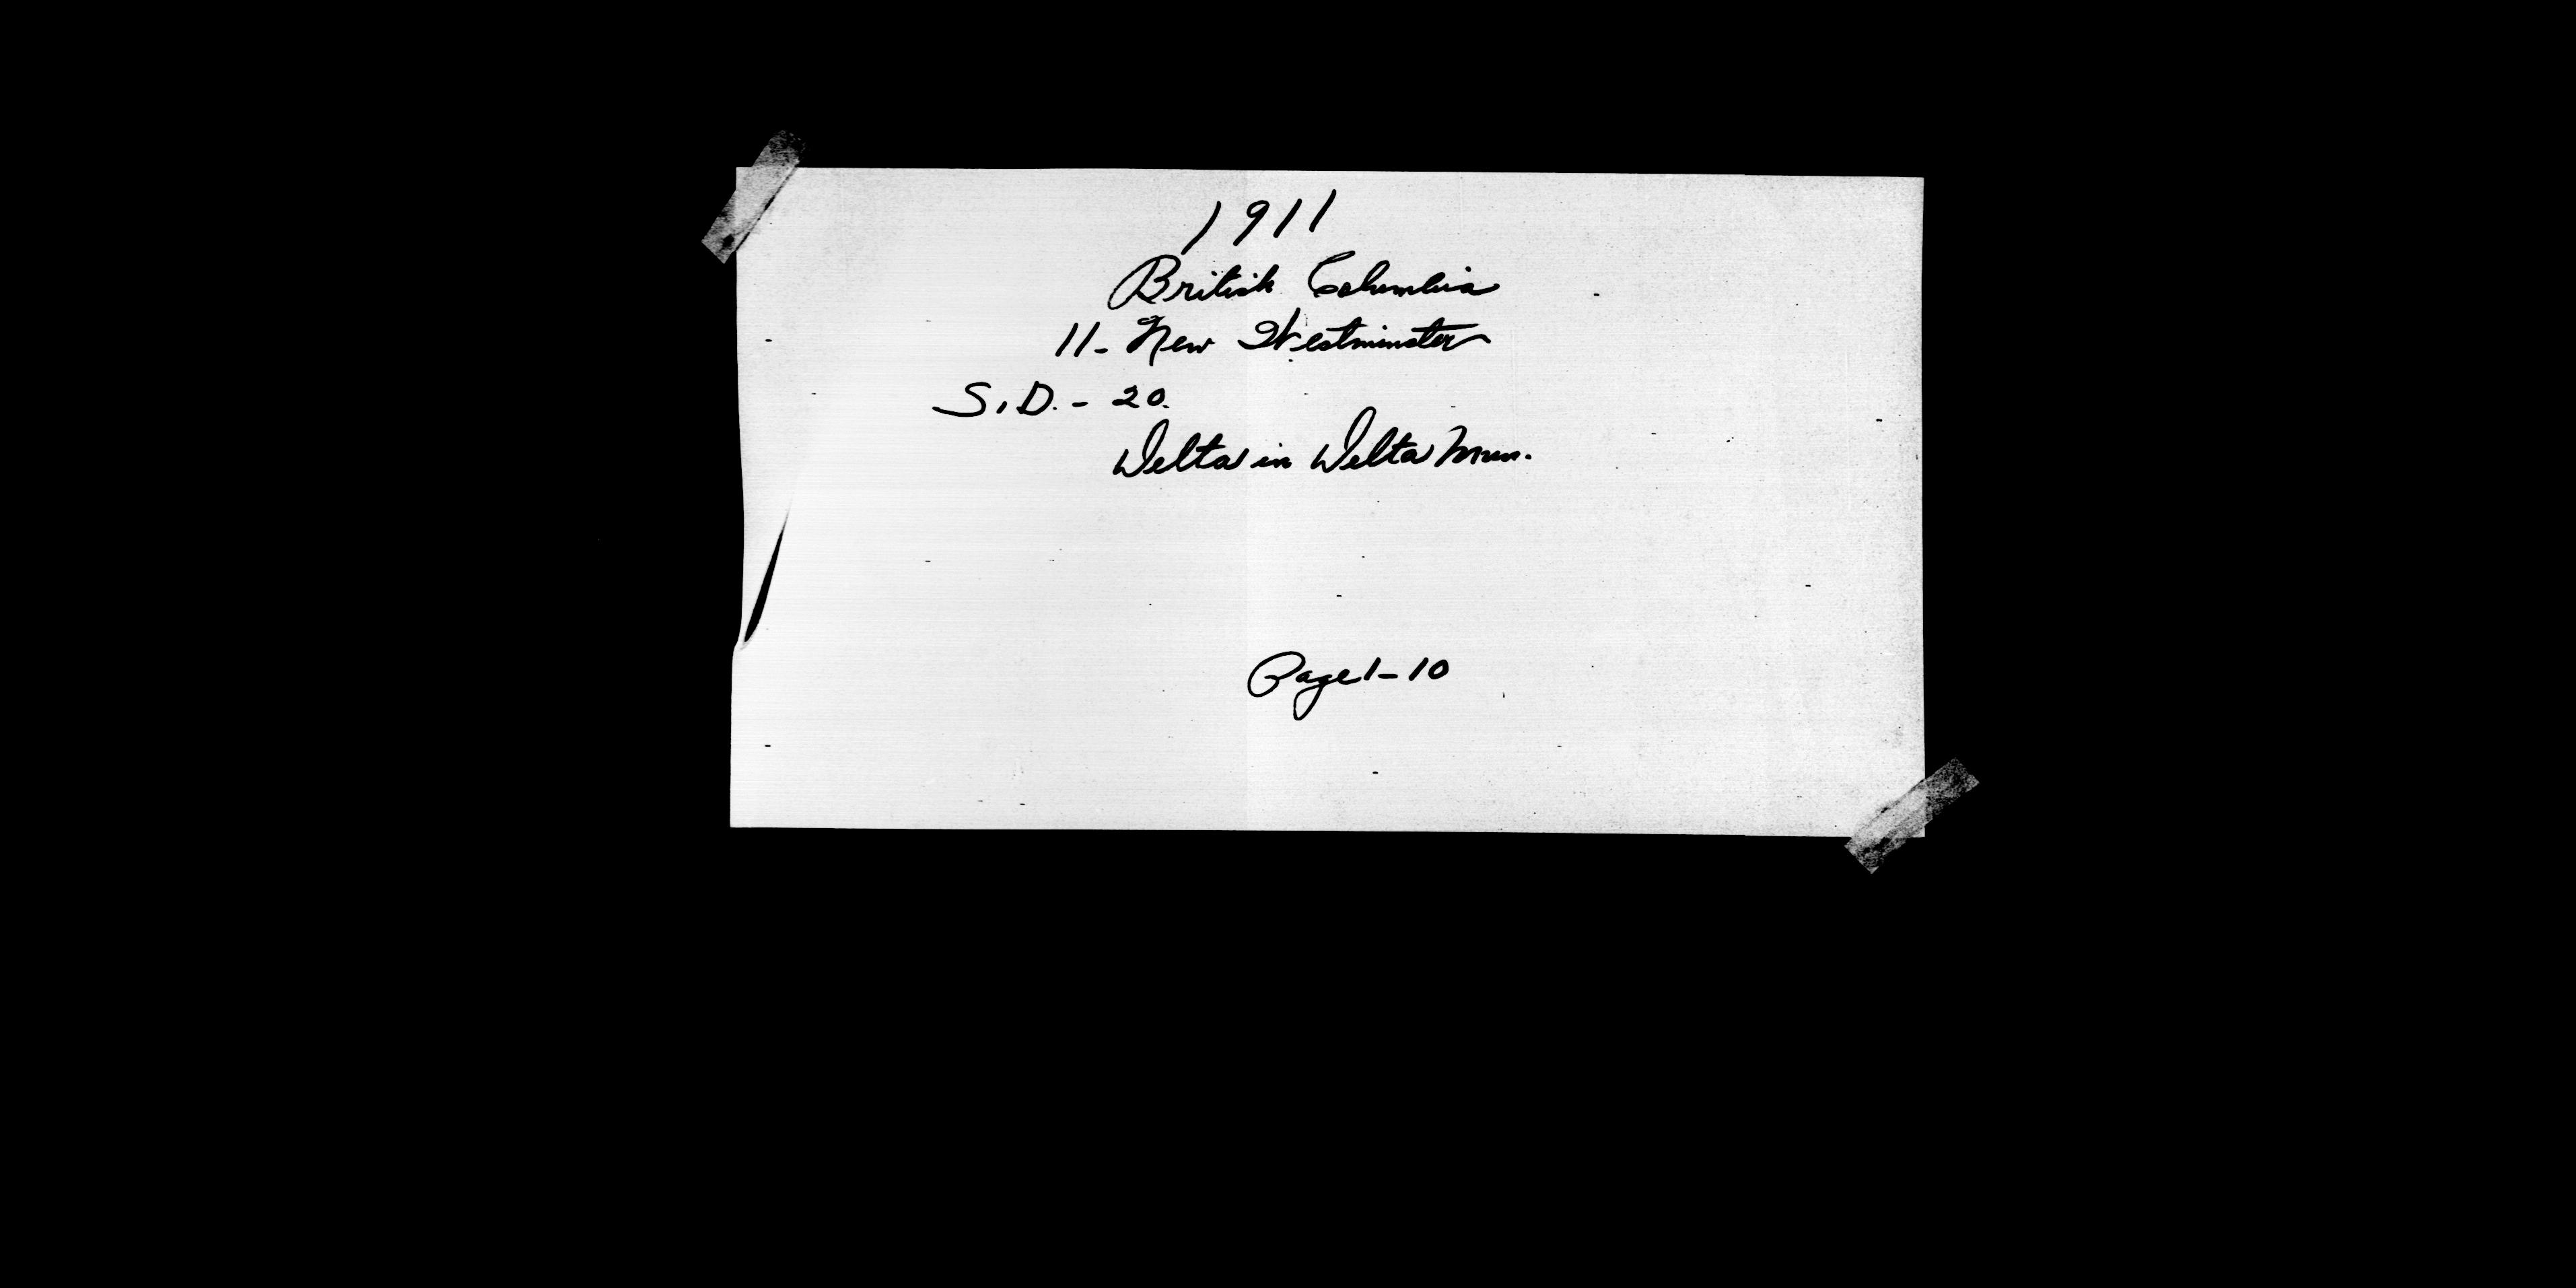 1911
British Columbia
11- New Westminster
S.D. - 20.
Delta in Delta Mun.
Page 1-10